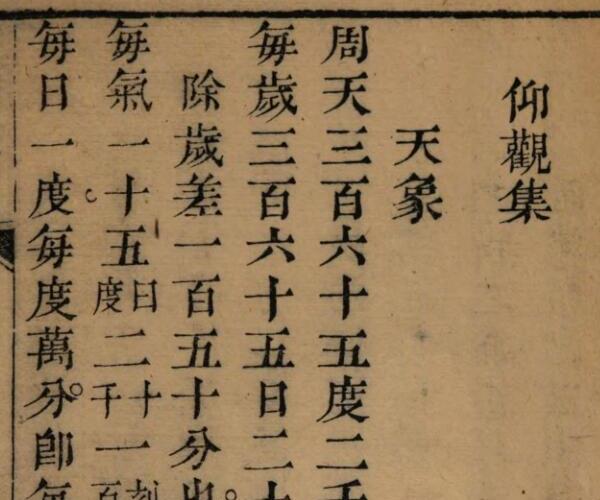 仰觀集
天象
周天三百六十五度二千
每歲三百六十五日二十
除歲差一百五十分出
每氣一十五日度二十千一刻百
每日一度每度萬分卽每